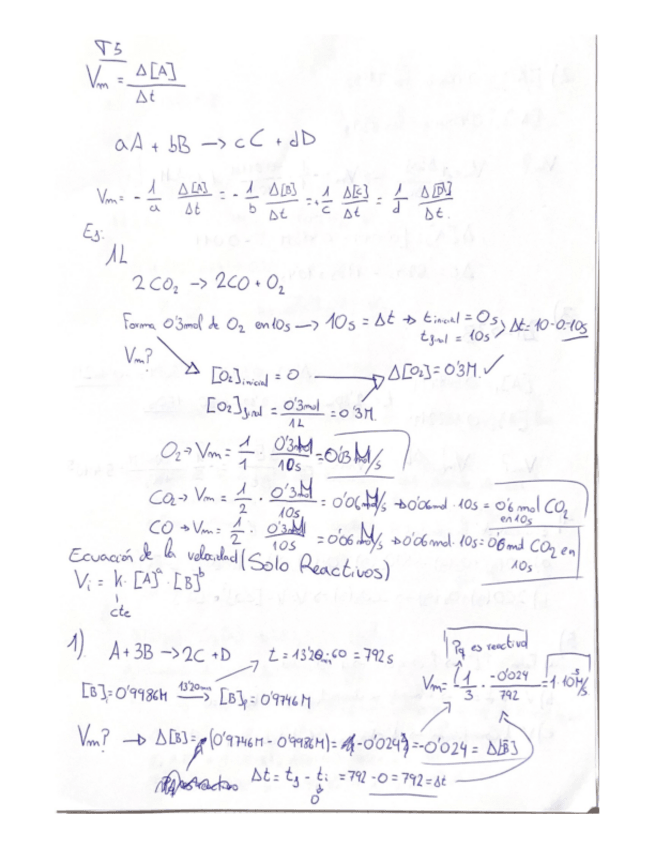 T5
Vm = Δ[A] / Δt
aA + bB → cC + dD
Vm = - 1/a Δ[A]/Δt = - 1/b Δ[B]/Δt = 1/c Δ[C]/Δt = 1/d Δ[D]/Δt.
Ej:
1L
2CO₂ → 2CO + O₂
Forma 0'3mol de O₂ en 10s → 10s = Δt → t inicial = 0s
t final = 10s > Δt = 10-0=10s
Vm?
[O₂]inicial = 0 → Δ[O₂] = 0'3M. ✓
[O₂]final = 0'3mol / 1L = 0'3M
O₂ → Vm = 1/1 · 0'3M/10s = 0'03M/s
CO₂ → Vm = 1/2 · 0'3M/10s = 0'06M/s → 0'06mol · 10s = 0'6 mol CO₂ en 10s
CO → Vm = 1/2 · 0'3M/10s = 0'06M/s → 0'06mol · 10s = 0'6 mol CO₂ en 10s
Ecuación de la velocidad (Solo Reactivos)
Vi = k · [A]ᵃ · [B]ᵇ
cte
1) A + 3B → 2C + D t = 13'20m · 60 = 792s
Pq es reactivo
[B]i = 0'9986M 13'20min → [B]f = 0'9746M
Vm = (-1/3 · -0'024/792 = 1·10⁻⁵ M/s
Vm? → Δ[B] = (0'9746M - 0'9986M) = -0'024 = -0'024 = Δ[B]
Δt = tf - ti = 792 - 0 = 792 = Δt
0